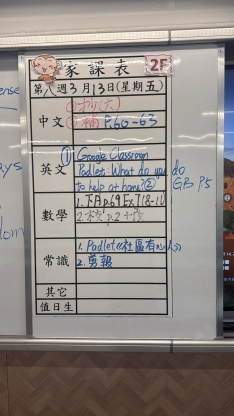 家課表
2F
第八週3月13日(星期五)
中文
①抄(六)
②補 P.60-63
英文
① Google Classroom
Padlet: What do you do
to help at home?② GB P5
數學
1.下A p.69 Ex.7
2. p.2
常識
1. Padlet《社區有
2.剪報
其它
值日生